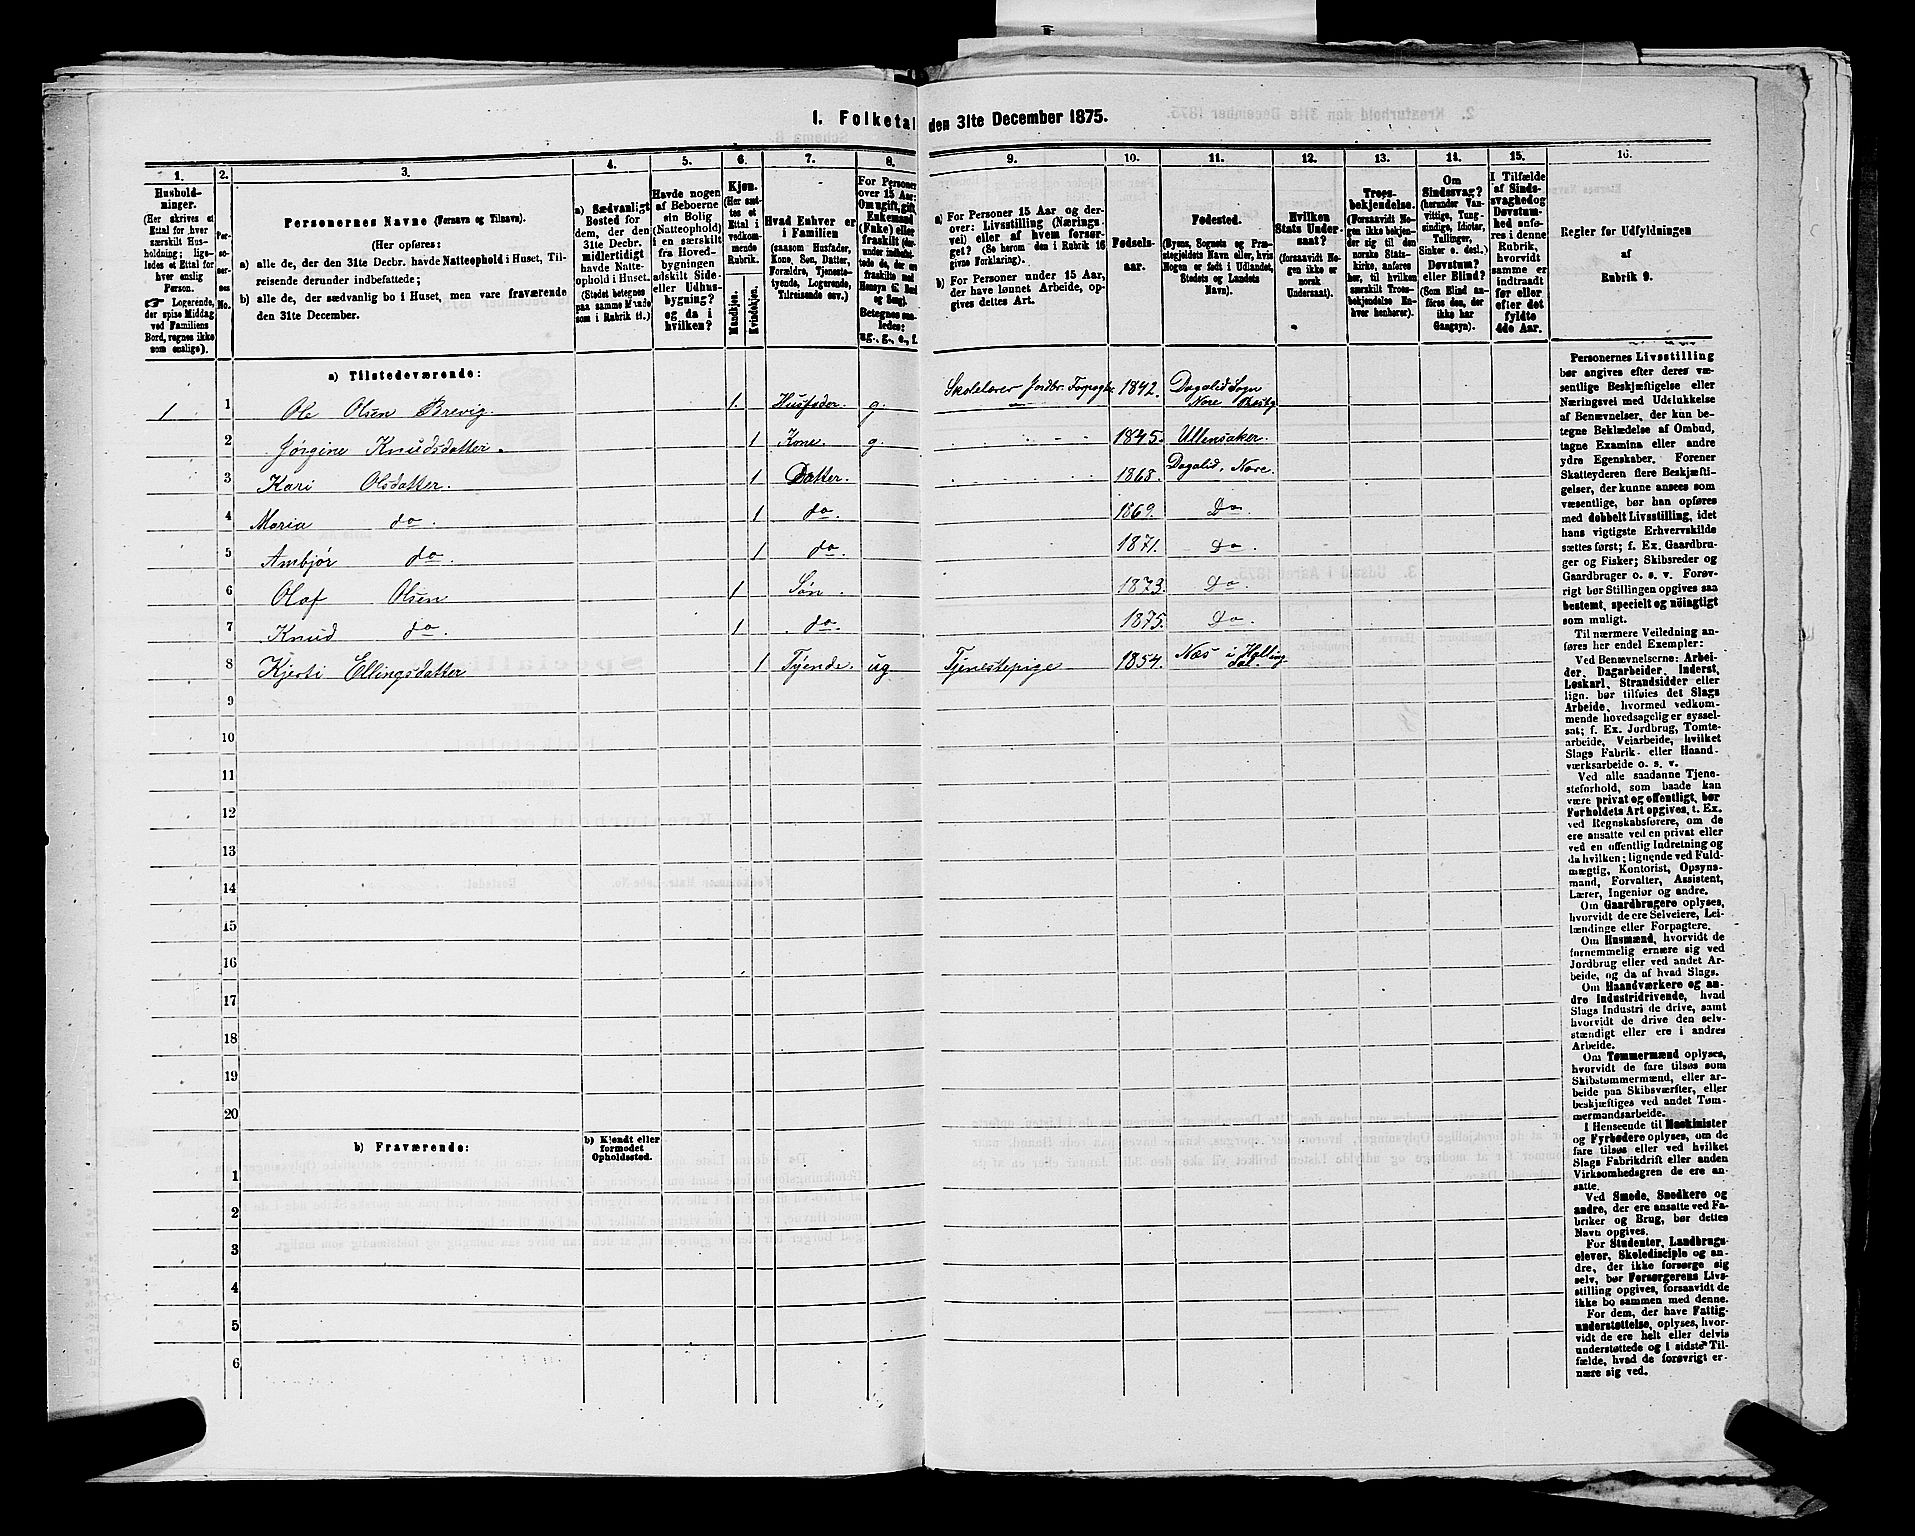 I. Folketal den 31te December 1875.
1. 2. 3. 4. 5. 6. 7. 8. 9. 10. 11. 12. 13. 14. 15. 16.
Hushold-
ninger.
(Her skrives et
Ettal for hver
særskilt Hus-
holdning; lige-
ledes et Ettal for
hver enslig
Person.
☞ Logerende,
der spise Middag
ved Familiens
Bord, regnes ikke
som enslige).
Per-
soner-
nes
No.
Personernes Navne (Fornavn og Tilnavn).
(Her opføres:
a) alle de, der den 31te Decbr. havde Natteophold i Huset, Til-
reisende derunder indbefattede;
b) alle de, der sædvanlig bo i Huset, men vare fraværende
den 31te December.
a) Sædvanligt
Bosted for
dem, der den
31te Decbr.
midlertidigt
havde Natte-
ophold i Huset.
(Stedet betegnes
paa samme Maade
som i Rubrik 11.)
Havde nogen
af Beboerne
sin Bolig
(Natteophold)
i en særskilt
fra Hoved-
bygningen
adskilt Side-
eller Udhus-
bygning?
og da i
hvilken?
Kjøn.
(Her sæt-
tes et
Ettal i
vedkom-
mende
Rubrik.
Mandkjøn.
Kvindekjøn.
Hvad Enhver er
i Familien
(saasom Husfader,
Kone, Søn, Datter,
Forældre, Tjeneste-
tyende, Logerende,
Tilreisende osv.)
For Personer
over 15 Aar:
Om ugift, gift,
Enkemand
(Enke) eller
fraskilt
Betegnes saa-
ledes:
ug., g., e., f.
a) For Personer 15 Aar og der-
over: Livsstilling (Nærings-
vei) eller af hvem forsør-
get? (Se herom den i Rubrik 16
givne Forklaring.)
b) For Personer under 15 Aar,
der have lønnet Arbeide, op-
gives dettes Art.
Fødsels-
aar.
Fødested.
(Byens, Sognets og Præ-
stegjeldets Navn eller, hvis
Nogen er født i Udlandet,
Stedets og Landets
Navn).
Hvilken
Stats Under-
saat?
(forsaavidt No-
gen ikke er
norsk
Undersaat).
Troes-
bekjendelse.
(Forsaavidt No-
gen ikke bekjen-
der sig til den
norske Stats-
kirke, anføres
her, til hvilken
særskilt Troes-
bekjendelse En-
hver henhører).
Om
Sindssvag?
(herunder Van-
vittige, Tung-
sindige, Idioter,
Tullinger,
Sinker o. desl.)
Døvstum?
eller Blind?
(Som Blind an-
føres den, der
ikke har
Gangsyn).
I Tilfælde
af Sinds-
svaghed og
Døvstum-
hed anfø-
res i denne
Rubrik,
hvorvidt
samme er
indtraadt
før eller
efter det
fyldte
4de Aar.
Regler for Udfyldningen
af
Rubrik 9.
a) Tilstedeværende:
1 1 Ole Olsen Brevig. 1. Husfader g. Skolelærer Jordbr. Forpagter 1842. Dagalid Sogn
Nore
2 Jørgine Knudsdatter. 1 Kone. g 1845. Ullensaker.
3 Kari Olsdatter. 1 Datter. 1868. Dagalid, Nore.
4 Maria do. 1 do. 1869. Do.
5 Ambjør do. 1 do. 1871. Do.
6 Olaf Olsen 1 Søn. 1873. Do.
7 Knud do. 1 do. 1875. Do.
8 Kjersti Ellingsdatter 1 Tyende. ug Tjenestepige 1854. Næs i Halling
dal
9
10
11
12
13
14
15
16
17
18
19
20
b) Fraværende:
b) Kjendt eller
formodet
Opholdssted.
1
2
3
4
5
6
Personernes Livsstilling
bør angives efter deres væ-
sentlige Beskjæftigelse eller
Næringsvei med Udelukkelse
af Benævnelser, der kun be-
tegne Beklædelse af Ombud,
tagne Examina eller andre
ydre Egenskaber. Forener
Skatteyderen flere Beskjæfti-
gelser, der kunne ansees som
væsentlige, bør han opføres
med dobbelt Livsstilling, idet
hans vigtigste Erhvervskilde
sættes først; f. Ex. Gaardbru-
ger og Fisker; Skibsreder og
Gaardbruger o. s. v. Forøv-
rigt bør Stillingen opgives saa
bestemt, specielt og nøiagtigt
som muligt.
Til nærmere Veiledning an-
føres her endel Exempler:
Ved Benævnelserne: Arbei-
der, Dagarbeider, Inderst,
Løskarl, Strandsidder eller
lign. bør tilføies det Slags
Arbeide, hvormed vedkom-
mende hovedsagelig er syssel-
sat; f. Ex. Jordbrug, Tomte-
arbeide, Veiarbeide, hvilket
Slags Fabrik- eller Haand-
værksarbeide o. s. v.
Ved alle saadanne Tjene-
steforhold, som baade kan
være privat og offentligt, bør
Forholdets Art opgives, t. Ex.
ved Regnskabsførere, om de
ere ansatte ved en privat eller
ved en offentlig Indretning og
da hvilken; lignende ved Fuld-
mægtig, Kontorist, Opsyns-
mand, Forvalter, Assistent,
Lærer, Ingeniør og andre.
Om Gaardbrugere oplyses,
hvorvidt de ere Selveiere, Lei-
lændinge eller Forpagtere.
Om Husmænd, hvorvidt de
fornemmelig ernære sig ved
Jordbrug eller ved andet Ar-
beide, og da af hvad Slags.
Om Haandværkere og an-
dre Industridrivende, hvad
Slags Industri de drive, samt
hvorvidt de drive den selv-
stændigt eller ere i andres
Arbeide.
Om Tømmermænd oplyses,
hvorvidt de fare tilsøs som
Skibstømmermænd, eller ar-
beide paa Skibsværfter, eller
beskjæftiges ved andet Tøm-
mermandsarbeide.
I Henseende til Maskinister
og Fyrbødere oplyses, om de
fare tilsøs eller ved hvilket
Slags Fabrikdrift eller anden
Virksomhedsgren de ere an-
satte.
Ved Smede, Snedkere og
andre, der ere ansatte ved Fa-
briker og Brug, bør dettes
Navn opgives.
For Studenter, Landbrugs-
elever, Skoledisciple og an-
dre, der ikke forsørge sig
selv, bør Forsørgerens Livs-
stilling opgives, forsaavidt de
ikke bo sammen med denne.
For dem, der have Fattig-
understøttelse, oplyses, hvor-
vidt de ere helt eller delvis
understøttede og i sidste Til-
fælde, hvad de forøvrigt er-
nære sig ved.